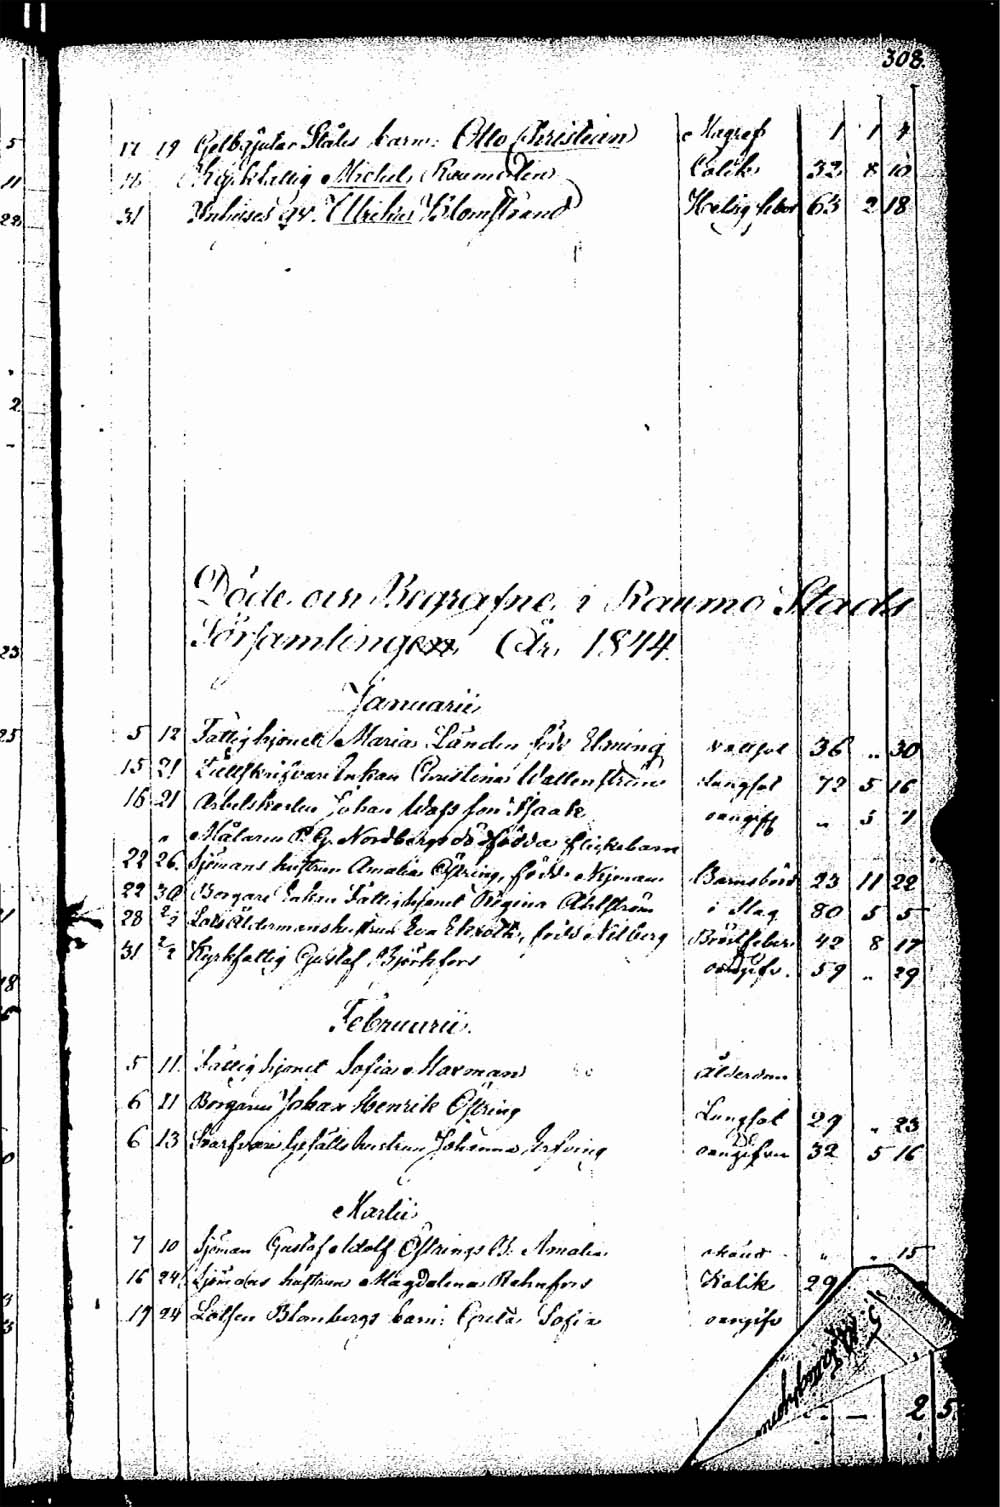 308.
17 19 Gelbgjutar Ståles barn: Otto Christian Magref 1 1 4
Kyrkfattig Michel Raumolen Colik 32 8 10
31 Inhises Blomstrand 63 2 18
Döde och Begrafne i Raumo Stads
Församlingen År 1844.
Januarii
5 12 Fattighjonet Maria Lunden född Elming vattsot 36 .. 30
15 21 Enkan Christina Wallenström Lungsot 72 5 16
16 21 Arbetskarlen Johan son Isaak oangift " 5 7
" Målaren P. G. Nordbergs dödfödda flickebarn
22 26. Sjömans hustrun Amalia Östring, född Nyman Barnsbörd 23 11 22
22 30 Borgare Enkan Fattighjonet Regina Ahlström i Slag 80 5 5
28 2/2 Lots Åldermans hustrun Eva Ekroth, född Nilberg Bröstfeber 42 8 17
31 2/2 Kyrkfattig Gustaf Björkfors oangifv. 59 .. 29
Februarii.
5 11. Fattighjonet Sofia Maxman ålderdom
6 11 Borgaren Johan Henrik Östring Lungsot 29 .. 23
6 13 hustrun Johanna oangifven 32 5 16
Martii
7 10 Sjöman Gustaf Adolf Östrings B: Amalia okänd " .. 15
16 24 Sjömans hustrun Magdalena Rehnfors Kolik 29
19 24 Lotsen Blombergs barn: Greta Sofia oangifv
2 5